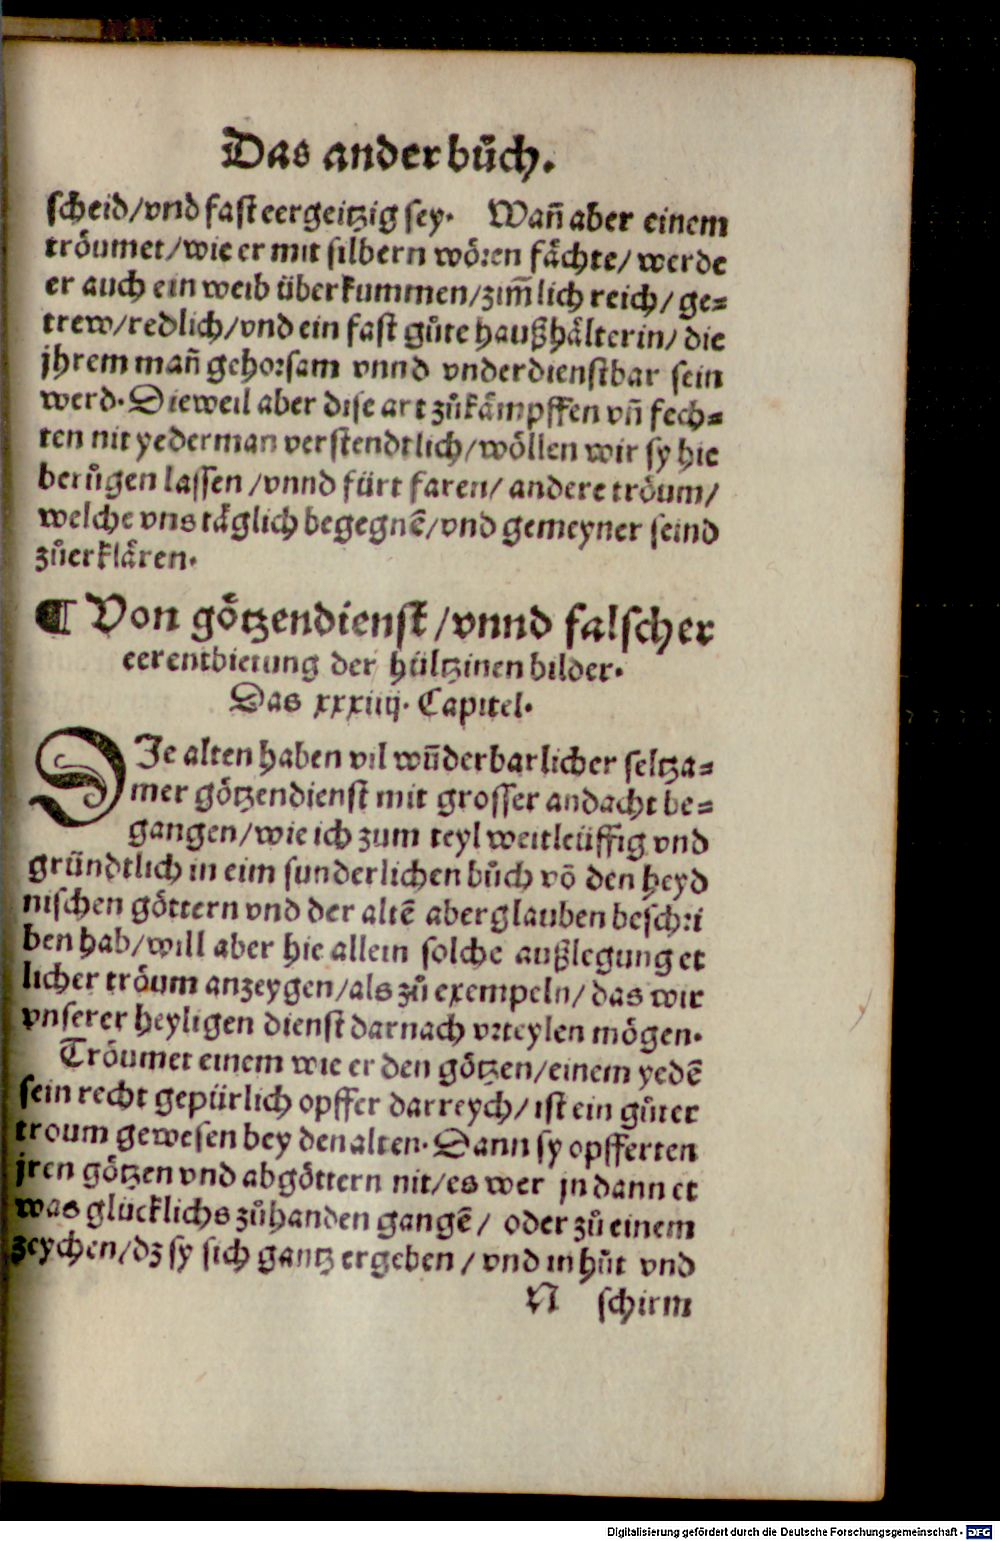 Das ander bůch.
scheid/vnd fast eergeitzig sey. Wañ aber einem
tröumet/wie er mit silbern wören fächte/werde
er auch ein weib überkummen/zim̃lich reich/ge⸗
trew/redlich/vnd ein fast gůte haußhälterin/die
jhrem mañ gehorsam vnnd vnderdienstbar sein
werd. Dieweil aber dise art zůkämpffen vñ fech⸗
ten nit yederman verstendtlich/wöllen wir sy hie
berůgen lassen/vnnd fürt faren/andere tröum/
welche vns täglich begegnẽ/vnd gemeyner seind
zůerklären.
¶ Von götzendienst/vnnd falscher
eerentbietung der hültzinen bilder.
Das xxxiiij. Capitel.
DIe alten haben vil wũderbarlicher seltza⸗
mer götzendienst mit grosser andacht be⸗
gangen/wie ich zum teyl weitleüffig vnd
gründtlich in eim sunderlichen bůch võ den heyd
nischen göttern vnd der altẽ aberglauben beschri
ben hab/will aber hie allein solche außlegung et
licher tröum anzeygen/als zů exempeln/das wir
vnserer heyligen dienst darnach vrteylen mögen.
Tröumet einem wie er den götzen/einem yedẽ
sein recht gepürlich opffer darreych/ist ein gůter
troum gewesen bey den alten. Dann sy opfferten
jren götzen vnd abgöttern nit/es wer jn dann et
was glücklichs zůhanden gangẽ/oder zů einem
zeychen/dz sy sich gantz ergeben/vnd in hůt vnd
N schirm
Digitalisierung gefördert durch die Deutsche Forschungsgemeinschaft - DFG